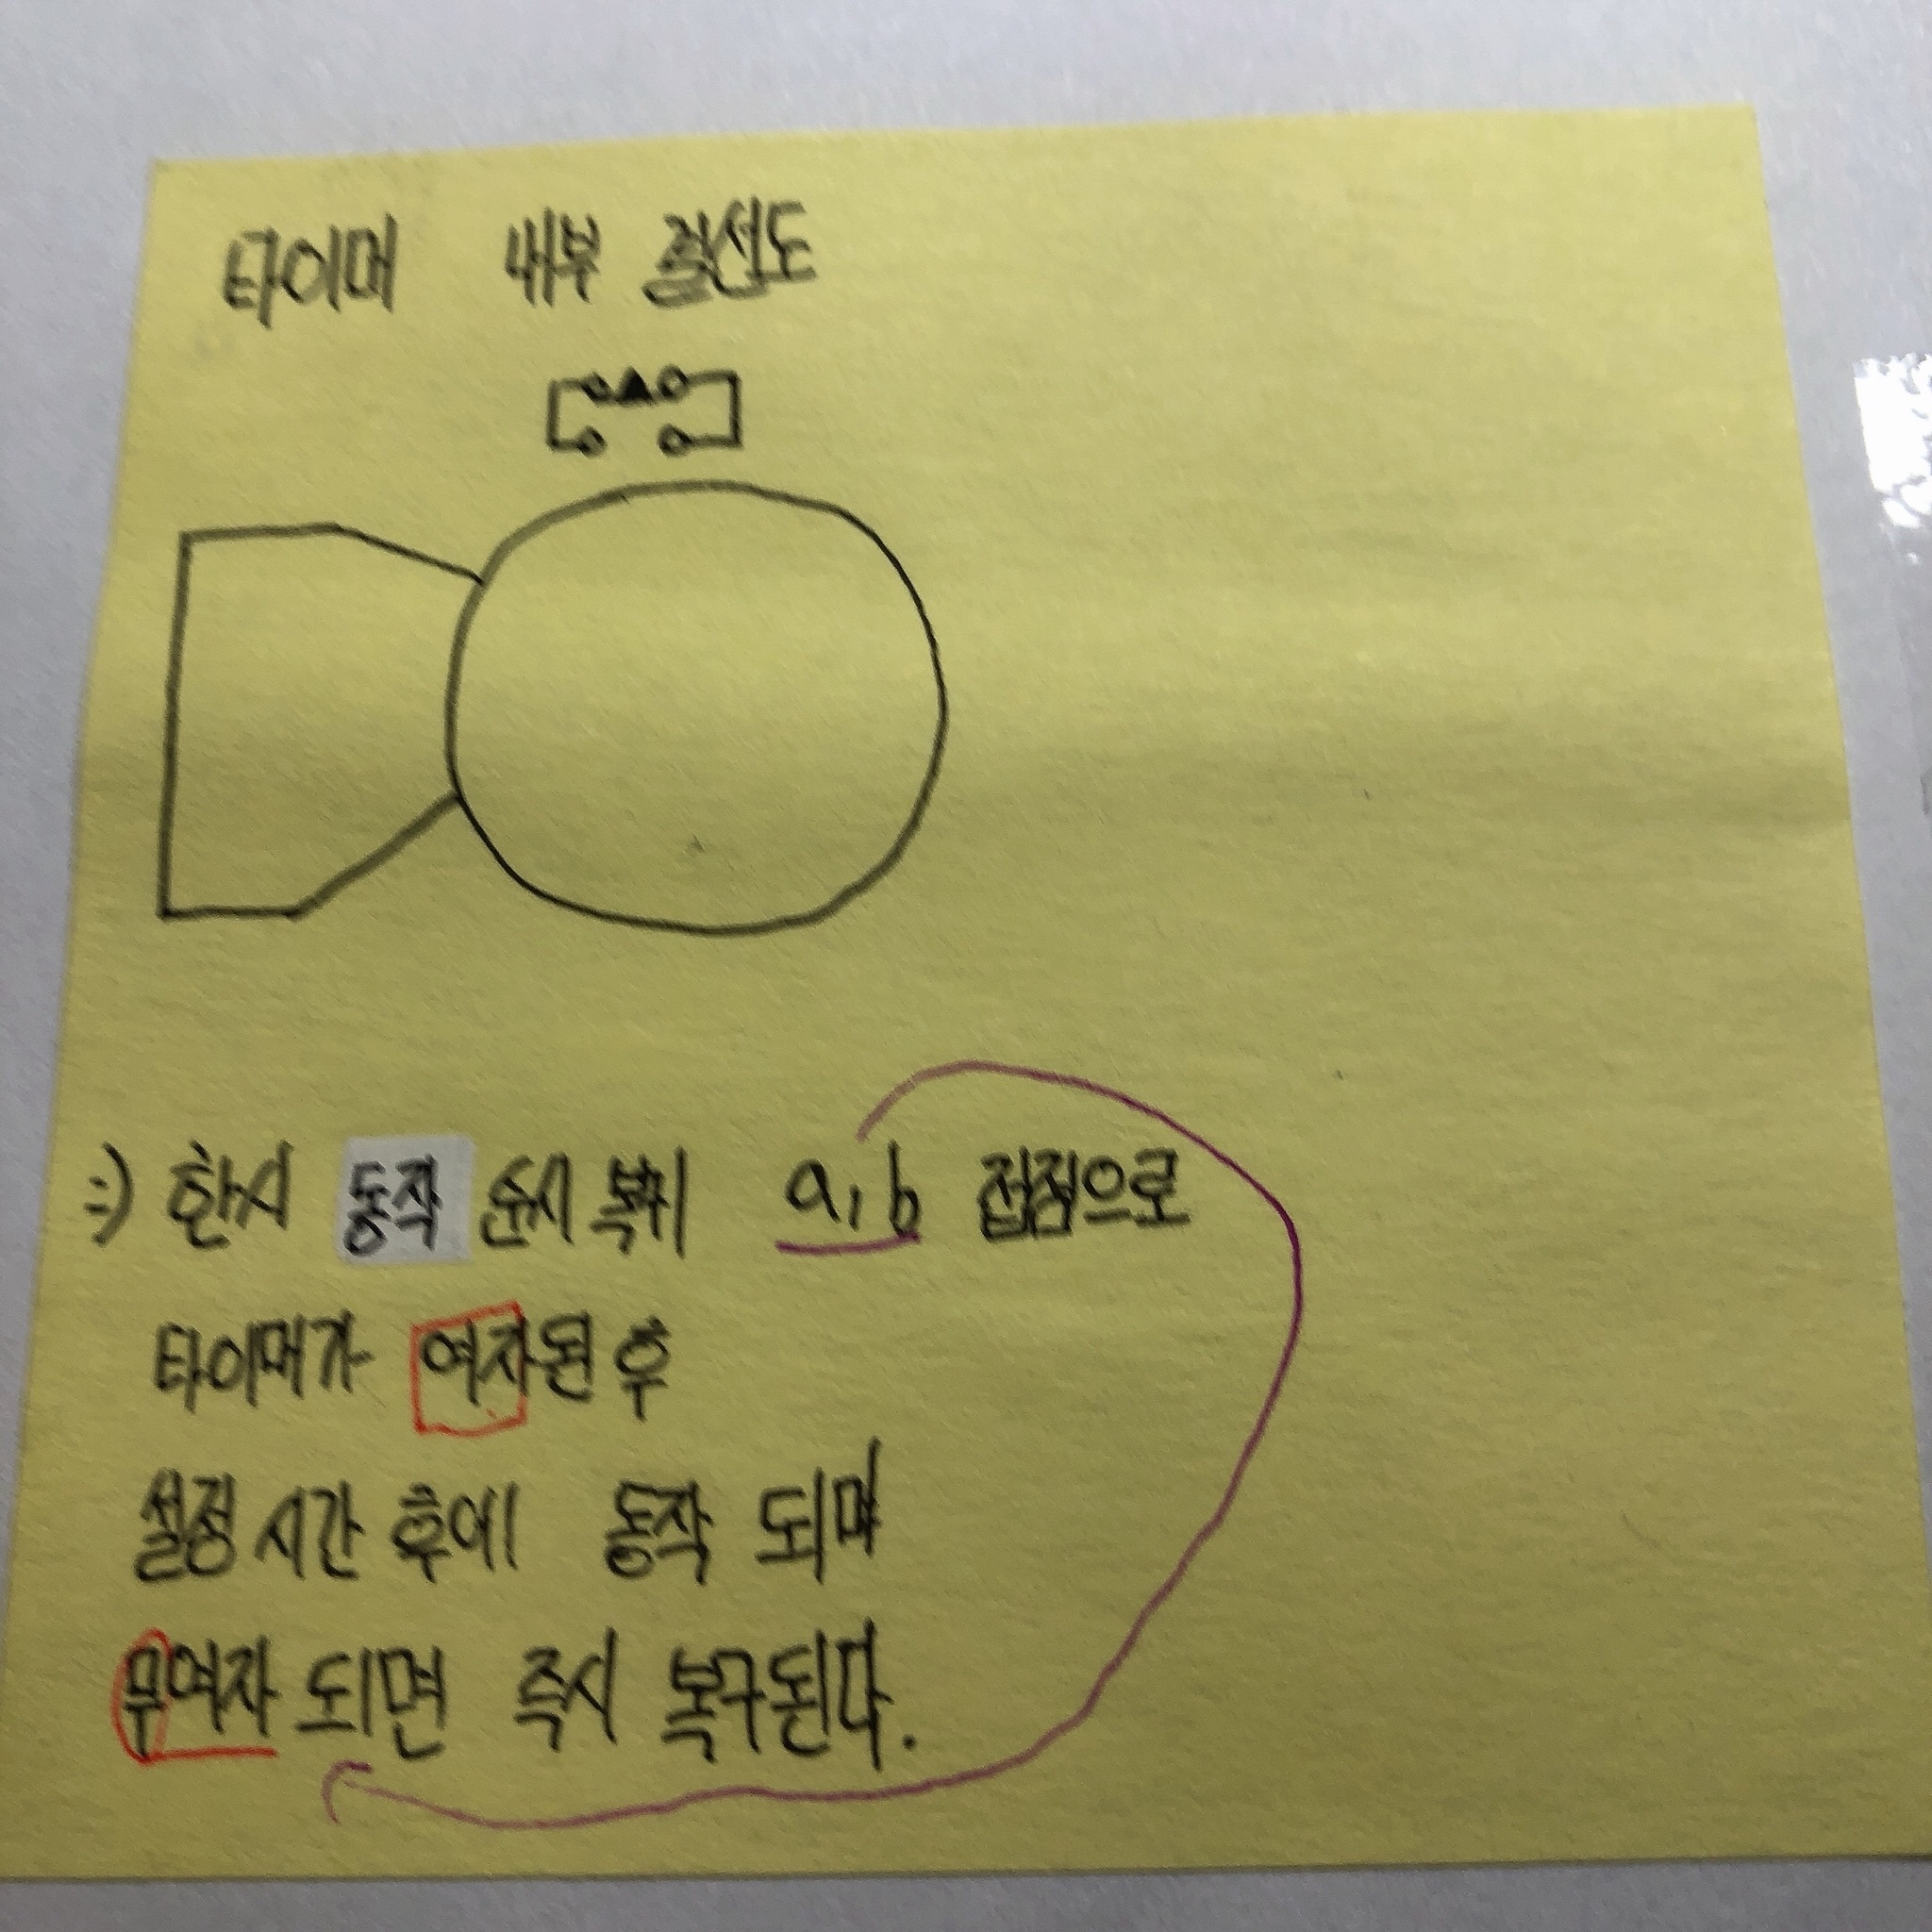 타이머 내부 결선도
=) 한시 동작 순시 복귀 a, b 접점으로
타이머가 여자된 후
설정 시간 후에 동작 되며
무여자 되면 즉시 복구된다.